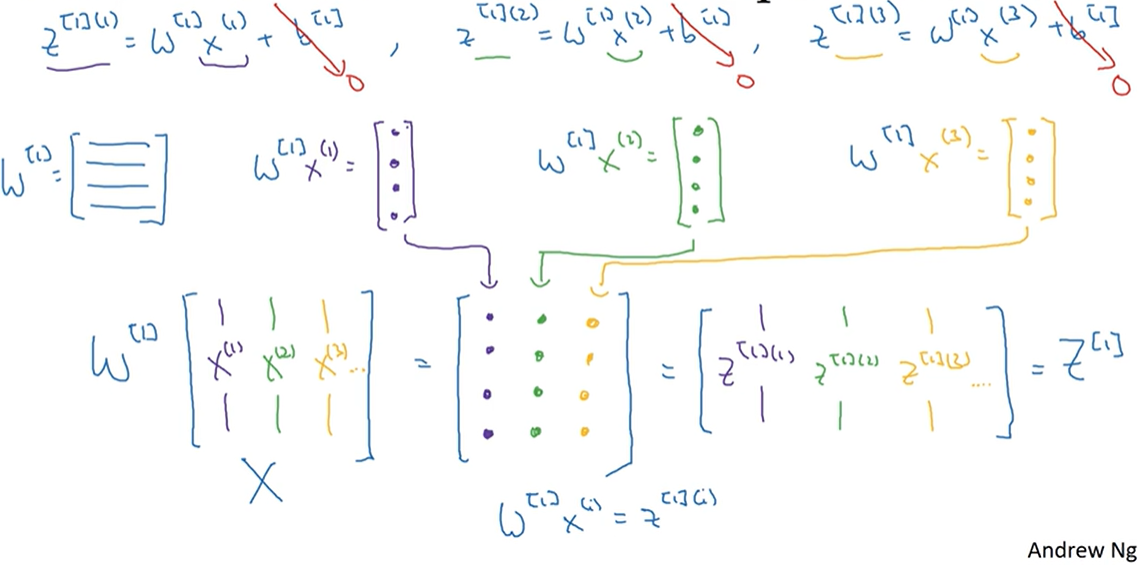 z^[1](1) = W^[1] x^(1) + b^[1] , z^[1](2) = W^[1] x^(2) + b^[1] , z^[1](3) = W^[1] x^(3) + b^[1]
0 0 0
W^[1] = [ ] W^[1] x^(1) = [ ] W^[1] x^(2) = [ ] W^[1] x^(3) = [ ]
W^[1] [ x^(1) x^(2) x^(3) ... ] = [ ] = [ z^[1](1) z^[1](2) z^[1](3) .... ] = Z^[1]
X
W^[1] x^(i) = z^[1](i)
Andrew Ng